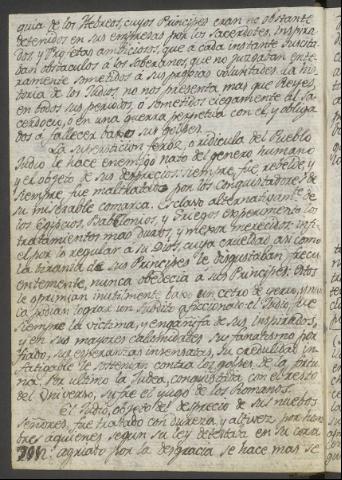 quia de los Hebreos, cuyos Principes eran no obstante
detenidos en sus empresas por los Sacerdotes, inspira-
dos, y Profetas ambiciosos, que a cada instante suscita-
ban obstaculos a los Soberanos, que no juzgaban ente-
ramente sometidos a sus propias voluntades. La his-
toria de los Judios, no nos presenta mas que Reyes,
en todos sus periodos, o sometidos ciegamente al Sa-
cerdocio, o en una guerra perpetua con el, y obliga-
dos à fallecer baxo sus golpes.
La supersticion feroz, o ridicula del Pueblo
Judio le hace enemigo nato del genero humano
y el objeto de sus desprecios: siempre fue rebelde, y
siempre fue maltratado por los conquistadores de
su miserable comarca. Esclavo alternativamente de
los Egipcios, Babilonios, y Griegos experimento los
tratamientos mas duros, y mejor merecidos: infi-
el por lo regular a su Dios, cuya crueldad asi como
la tirania de sus Principes le disgustaban frecu-
entemente, nunca obedecia a sus Principes: estos
le oprimian inutilmente baxo un cetro de yerro, y nun-
ca podian lograr un subdito aficionado: el Judio, fue
siempre la victima, y engañifa de sus inspirados,
y en sus mayores calamidades su fanatismo por-
fiado, sus esperanzas insensatas, su credulidad in-
fatigable le sostenian contra los golpes de la fortu-
na. Por ultimo la Judea, conquistada con el resto
del Universo, sufre el yugo de los Romanos.
El Judio, objeto del desprecio de sus nuebos
señores, fue tratado con dureza y altivez por hom-
bres aquienes segun su ley detestava en su cora-
zon: agriado por la desgracia se hace mas se-